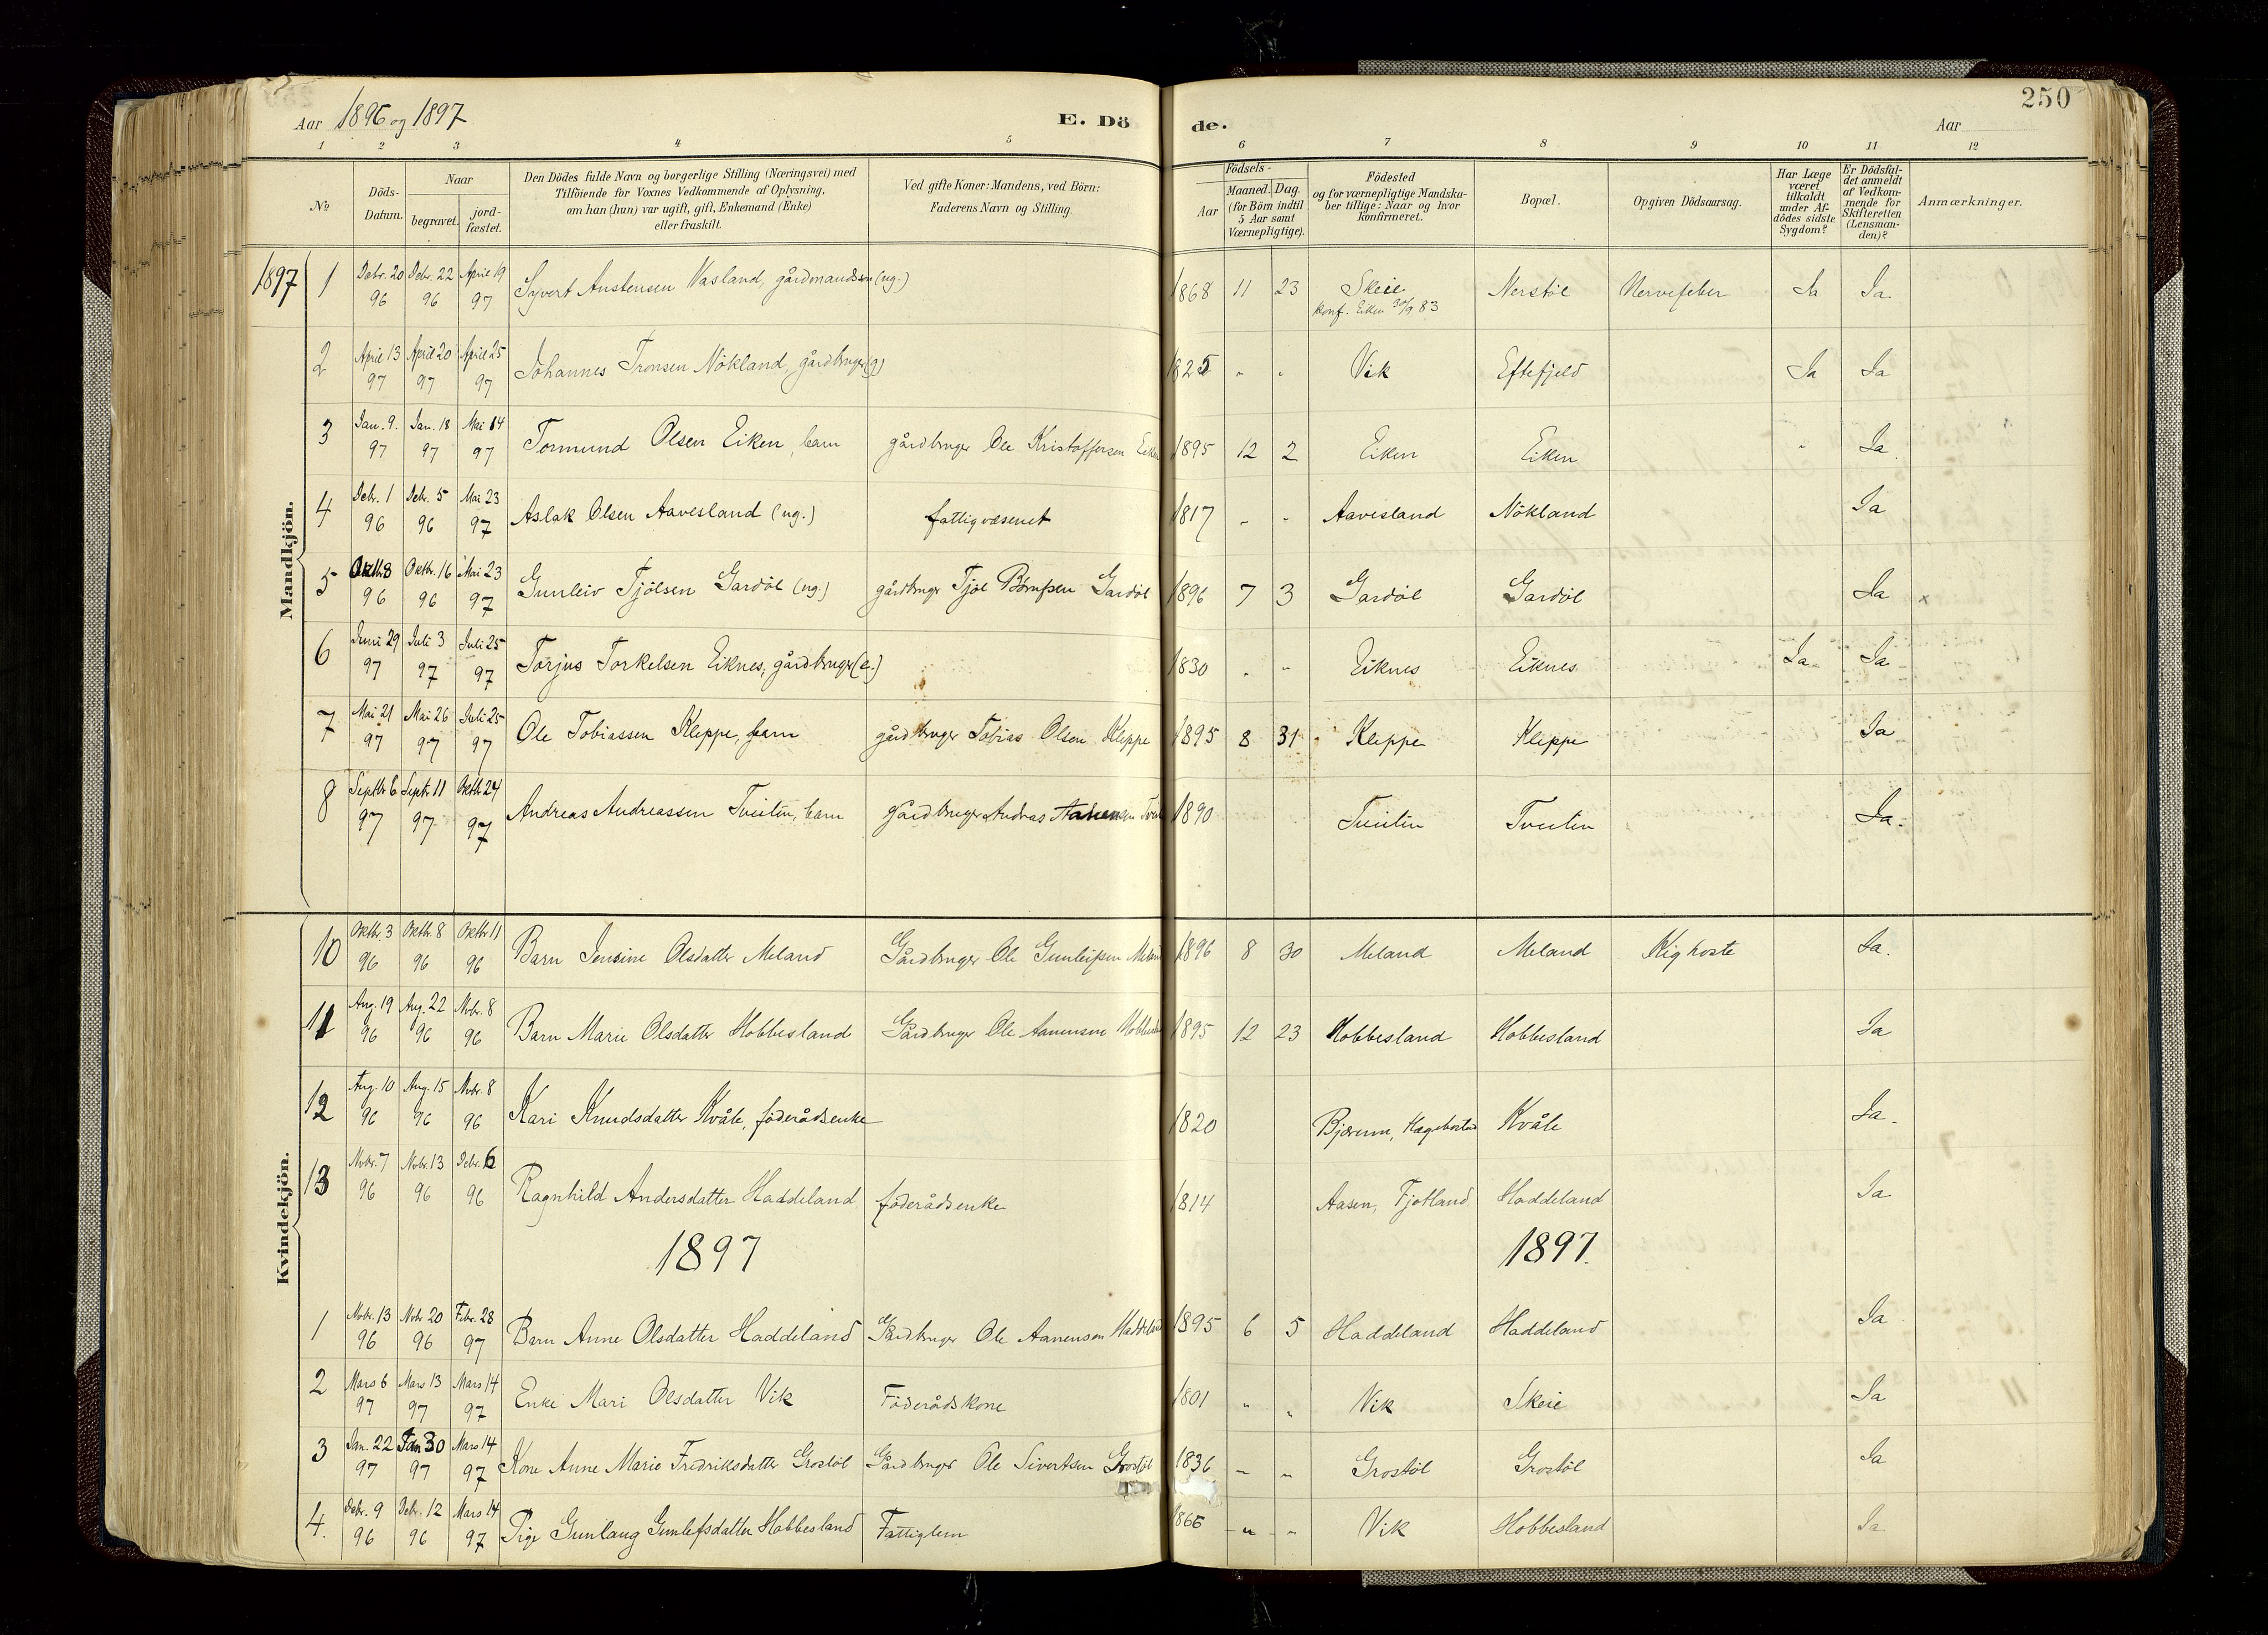 250
Aar 1896 og 1897
E. Dö
de.
Aar
1 2 3 4 5 6 7 8 9 10 11 12
№
Döds-Datum.
Naar
begravet.
jord-fæstet.
Den Dödes fulde Navn og borgerlige Stilling (Næringsvei) med
Tilföiende for Voxnes Vedkommende af Oplysning,
om han (hun) var ugift, gift, Enkemand (Enke)
eller fraskilt.
Ved gifte Koner: Mandens, ved Börn:
Faderens Navn og Stilling.
Födsels-
Aar
Maaned. Dag.
(for Börn indtil
5 Aar samt
Værnepligtige).
Födested
og for værnepligtige Mandska-
ber tillige: Naar og hvor
konfirmeret.
Bopæl.
Opgiven Dödsaarsag.
Har Læge
været
tilkaldt
under Af-
dödes sidste
Sygdom?
Er Dödsfal-
det anmeldt
af Vedkom-
mende for
Skifteretten
(Lensman-
den)?
Anmærkninger.
Mandkjön.
1897 1 Debr. 20 96 Debr. 22 96 April 19 97 Syvert Austensen Vasland, gårdmandssøn (ug.) 1868 11 23 Skeie Nerstöl Nervefeber Ja Ja
konf. Eiken 30/9 83
2 April 13 97 April 20 97 April 25 97 Johannes Tronsen Nökland, gårdbruger (g) 1825 " " Vik Eftefjeld Ja Ja
3 Jan. 9. 97 Jan. 18 97 Mai 14 97 Tormund Olsen Eiken, barn gårdbruger Ole Kristoffersen Eiken 1895 12 2 Eiken Eiken " Ja
4 Debr. 1 96 Debr. 5 96 Mai 23 97 Aslak Olsen Aavesland (ug.) fattigvæsenet 1817 " " Aavesland Nökland Ja
5 Oktbr 8 96 Oktbr. 16 96 Mai 23 97 Gunleiv Tjölsen Gardöl (ug.) gårdbruger Tjöl Gardöl 1896 7 3 Gardöl Gardöl Ja x
6 Juni 29 97 Juli 3 97 Juli 25 97 Torjus Torkelsen Eiknes, gårdbruger (e.) 1830 " " Eiknes Eiknes Ja Ja
7 Mai 21 97 Mai 26 97 Juli 25 97 Ole Tobiassen Kleppe, barn gårdbruger Tobias Olsen Kleppe 1895 8 31 Kleppe Kleppe Ja
8 Septbr 6 97 Septr 11 97 Oktbr 24 97 Andreas Andreassen Tveiten, barn gårdbruger Andreas 1890 Tveiten Tveiten Ja.
Kvindekjön.
10 Oktbr. 3 96 Oktbr. 8 96 Oktbr 11 96 Barn Jensine Olsdatter Meland Gårdbruger Ole Gunleifsen Meland 1896 8 30 Meland Meland Kighoste Ja.
11 Aug. 19 96 Aug. 22 96 Nvbr. 8 96 Barn Marie Olsdatter Hobbesland Gårdbruger Ole Aanensen Hobbesland 1895 12 23 Hobbesland Hobbesland Ja
12 Aug. 10 96 Aug. 15 96 Nvbr. 8 96 Kari Knudsdatter Kvåle, föderådsenke 1820 Bjærum, Hægebostad Kvåle Ja
13 Nvbr. 7 96 Nvbr. 13 96 Debr. 6 96 Ragnhild Andersdatter Haddeland föderådsenke 1814 Aasen, Fjotland Haddeland Ja
1897
1897.
1 Nvbr. 13 96 Nvbr 20 96 Febr. 28 97 Barn Anne Olsdatter Haddeland Gårdbruger Ole Aanenson Haddeland 1895 6 5 Haddeland Haddeland Ja
2 Mars 6 97 Mars 13 97 Mars 14 97 Enke Mari Olsdatter Vik Föderådskone 1801 " " Vik Skeie Ja
3 Jan. 22 97 Jan 30 97 Mars 14 97 Kone Anne Marie Fredriksdatter Grostöl Gårdbruger Ole Sivertsen Grostöl 1836 " " Grostöl Grostöl Ja
4. Debr. 9 96 Debr. 12 96 Mars 14 97 Pige Gunlaug Gunleifsdatter Hobbesland Fattiglem 1866 " " Vik Hobbesland Ja